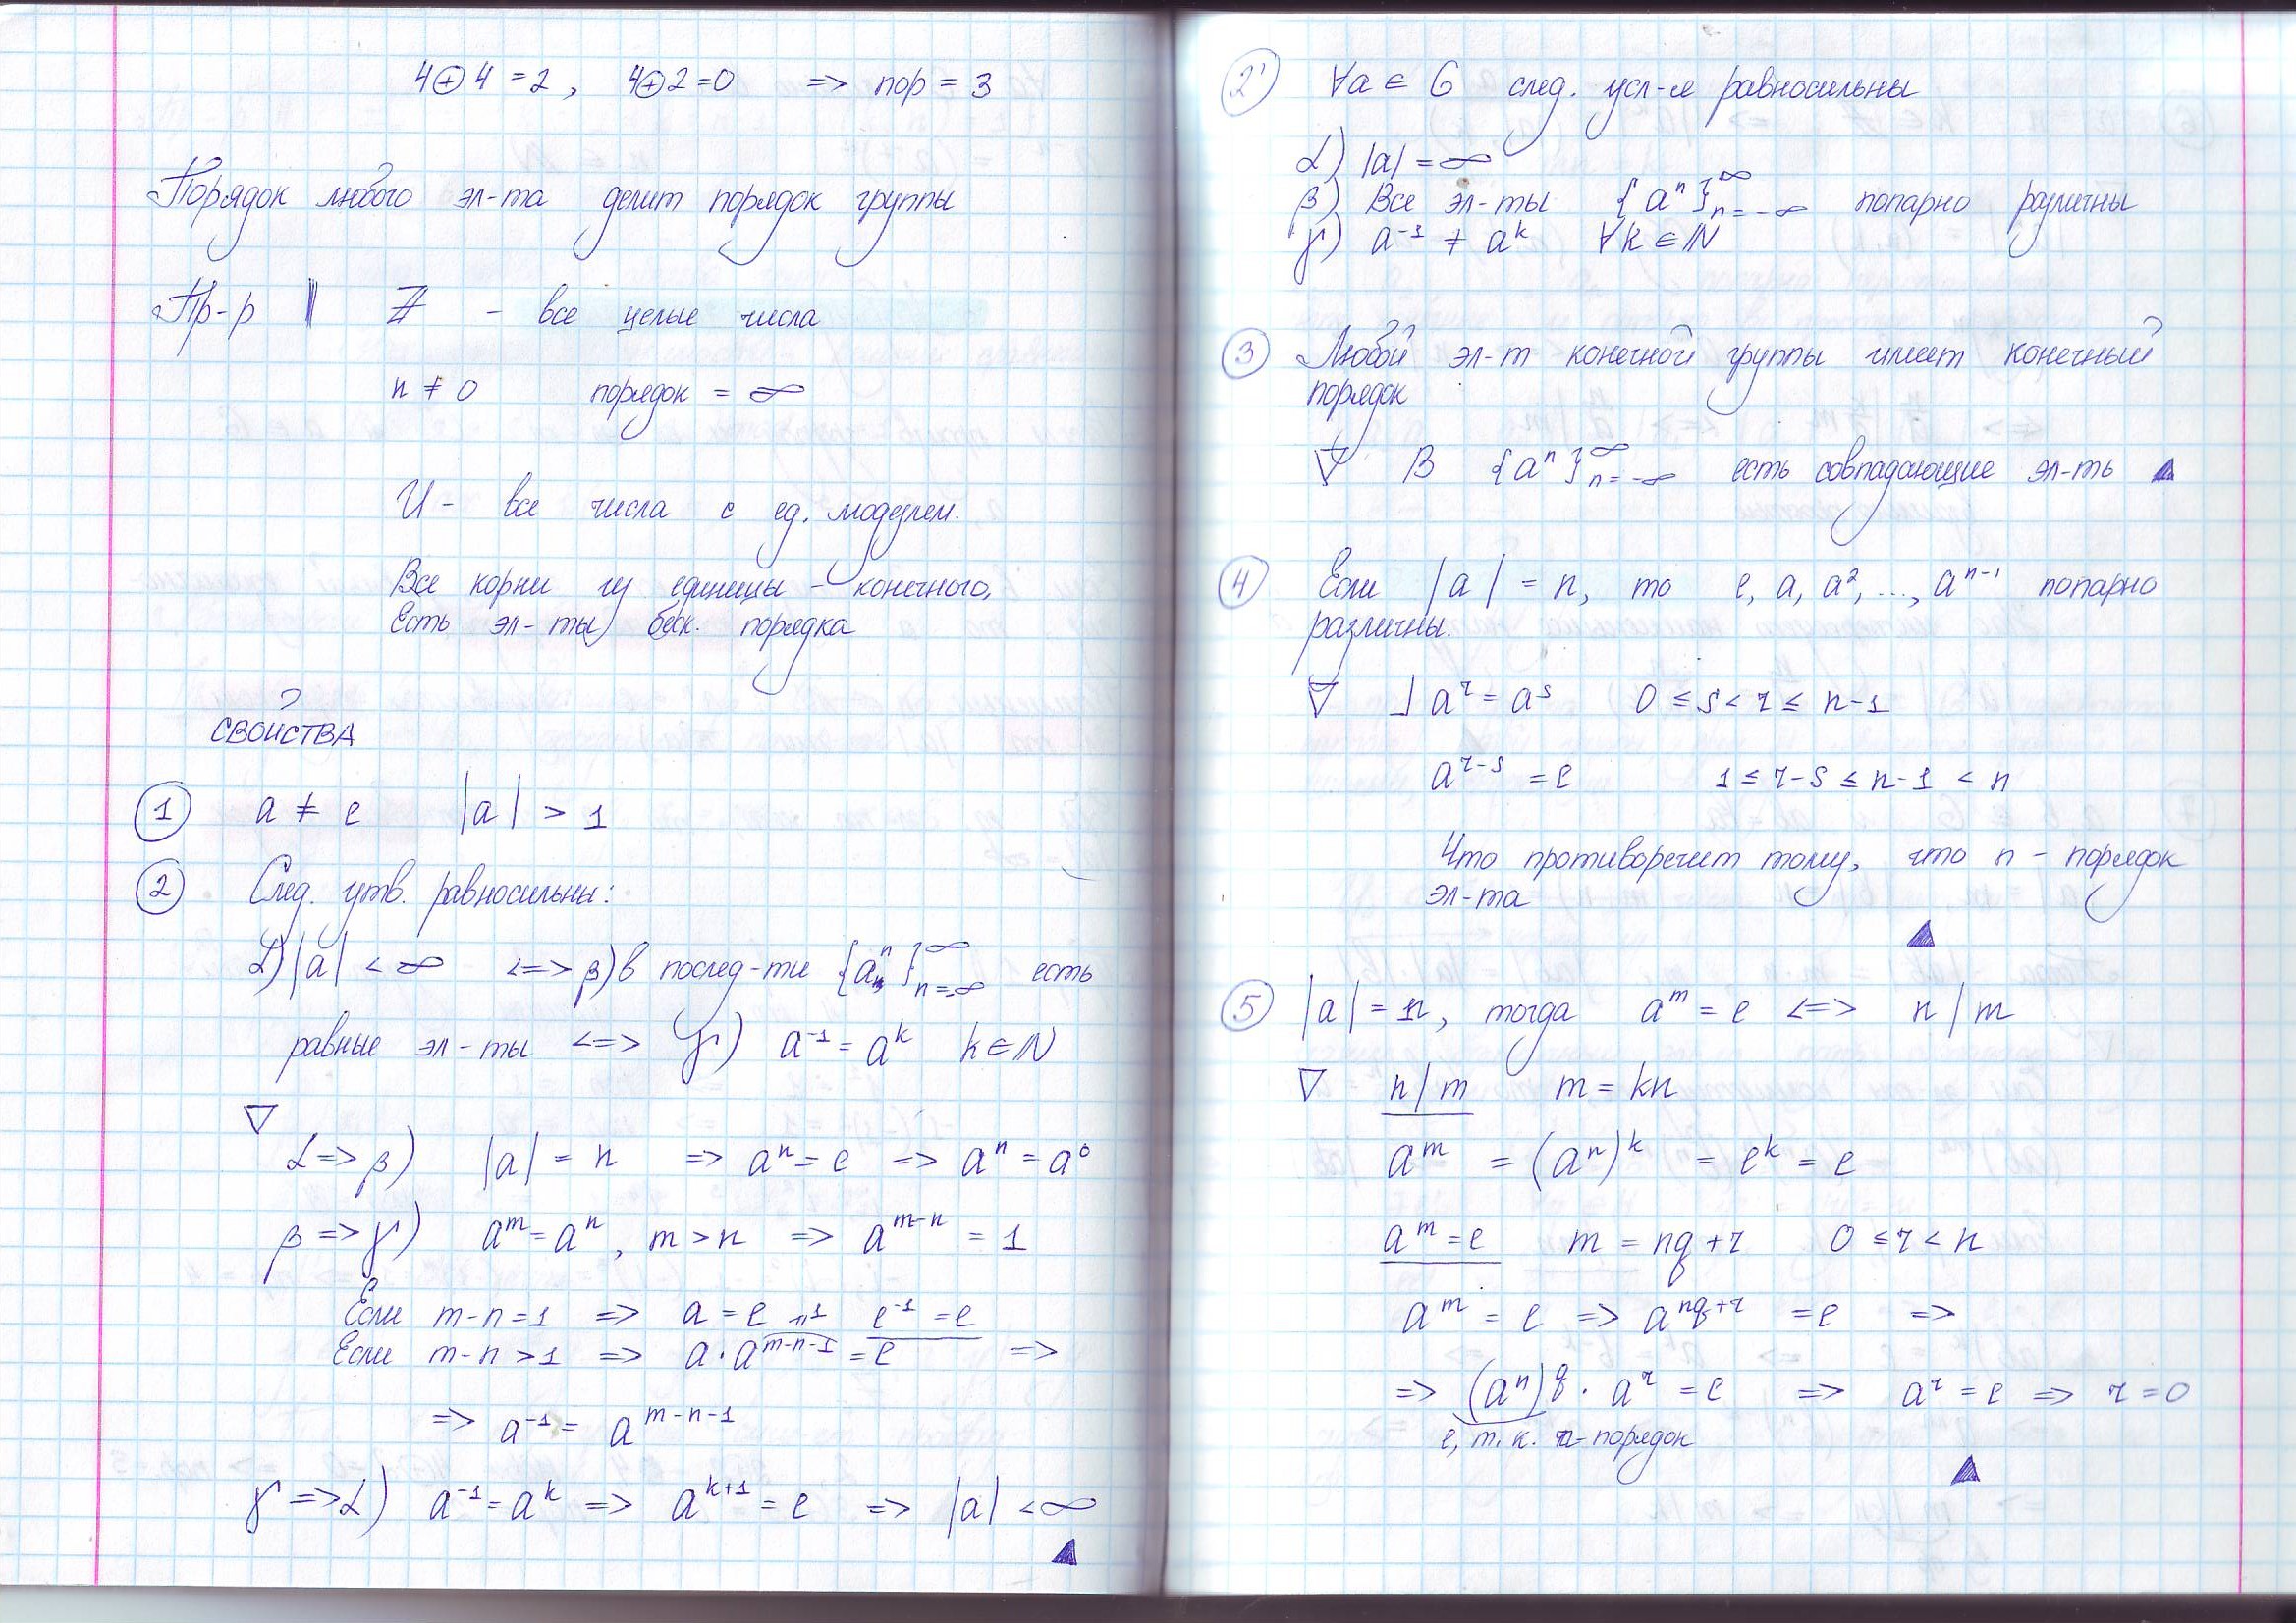 4⊕4 = 2, 4⊕2 = 0 => пор = 3
Порядок любого эл-та делит порядок группы
Пр-р ℤ - все целые числа
n ≠ 0 порядок = ∞
U - все числа с ед. модулем.
Все корни из единицы - конечного,
Есть эл-ты беск. порядка
СВОЙСТВА
① a ≠ e |a| > 1
② След. утв. равносильны:
α) |a| < ∞ <=> β) в послед-ти {aⁿ}_{n=-∞}^{∞} есть
равные эл-ты <=> γ) a⁻¹ = aᵏ k ∈ N
▽
α => β) |a| = n => aⁿ = e => aⁿ = a⁰
β => γ) a^m = a^n, m > n => a^{m-n} = 1
Если m-n = 1 => a = e e⁻¹ = e
Если m-n > 1 => a · a^{m-n-1} = e =>
=> a⁻¹ = a^{m-n-1}
γ => α) a⁻¹ = a^k => a^{k+1} = e => |a| < ∞
▲
②' ∀a ∈ G след. усл-я равносильны
α) |a| = ∞
β) Все эл-ты {aⁿ}_{n=-∞}^{∞} попарно различны
γ) a⁻¹ ≠ a^k ∀k ∈ N
③ Любой эл-т конечной группы имеет конечный
порядок
▽ В {aⁿ}_{n=-∞}^{∞} есть совпадающие эл-ты ▲
④ Если |a| = n, то e, a, a², ..., a^{n-1} попарно
различны.
▽ ⅃ a^r = a^s 0 ≤ s < r ≤ n-1
a^{r-s} = e 1 ≤ r-s ≤ n-1 < n
Что противоречит тому, что n - порядок
эл-та
▲
⑤ |a| = n, тогда a^m = e <=> n | m
▽ n | m m = kn
a^m = (aⁿ)^k = e^k = e
a^m = e m = nq + r 0 ≤ r < n
a^m = e => a^{nq+r} = e =>
=> (aⁿ)^q · a^r = e => a^r = e => r = 0
e, т.к. n - порядок
▲